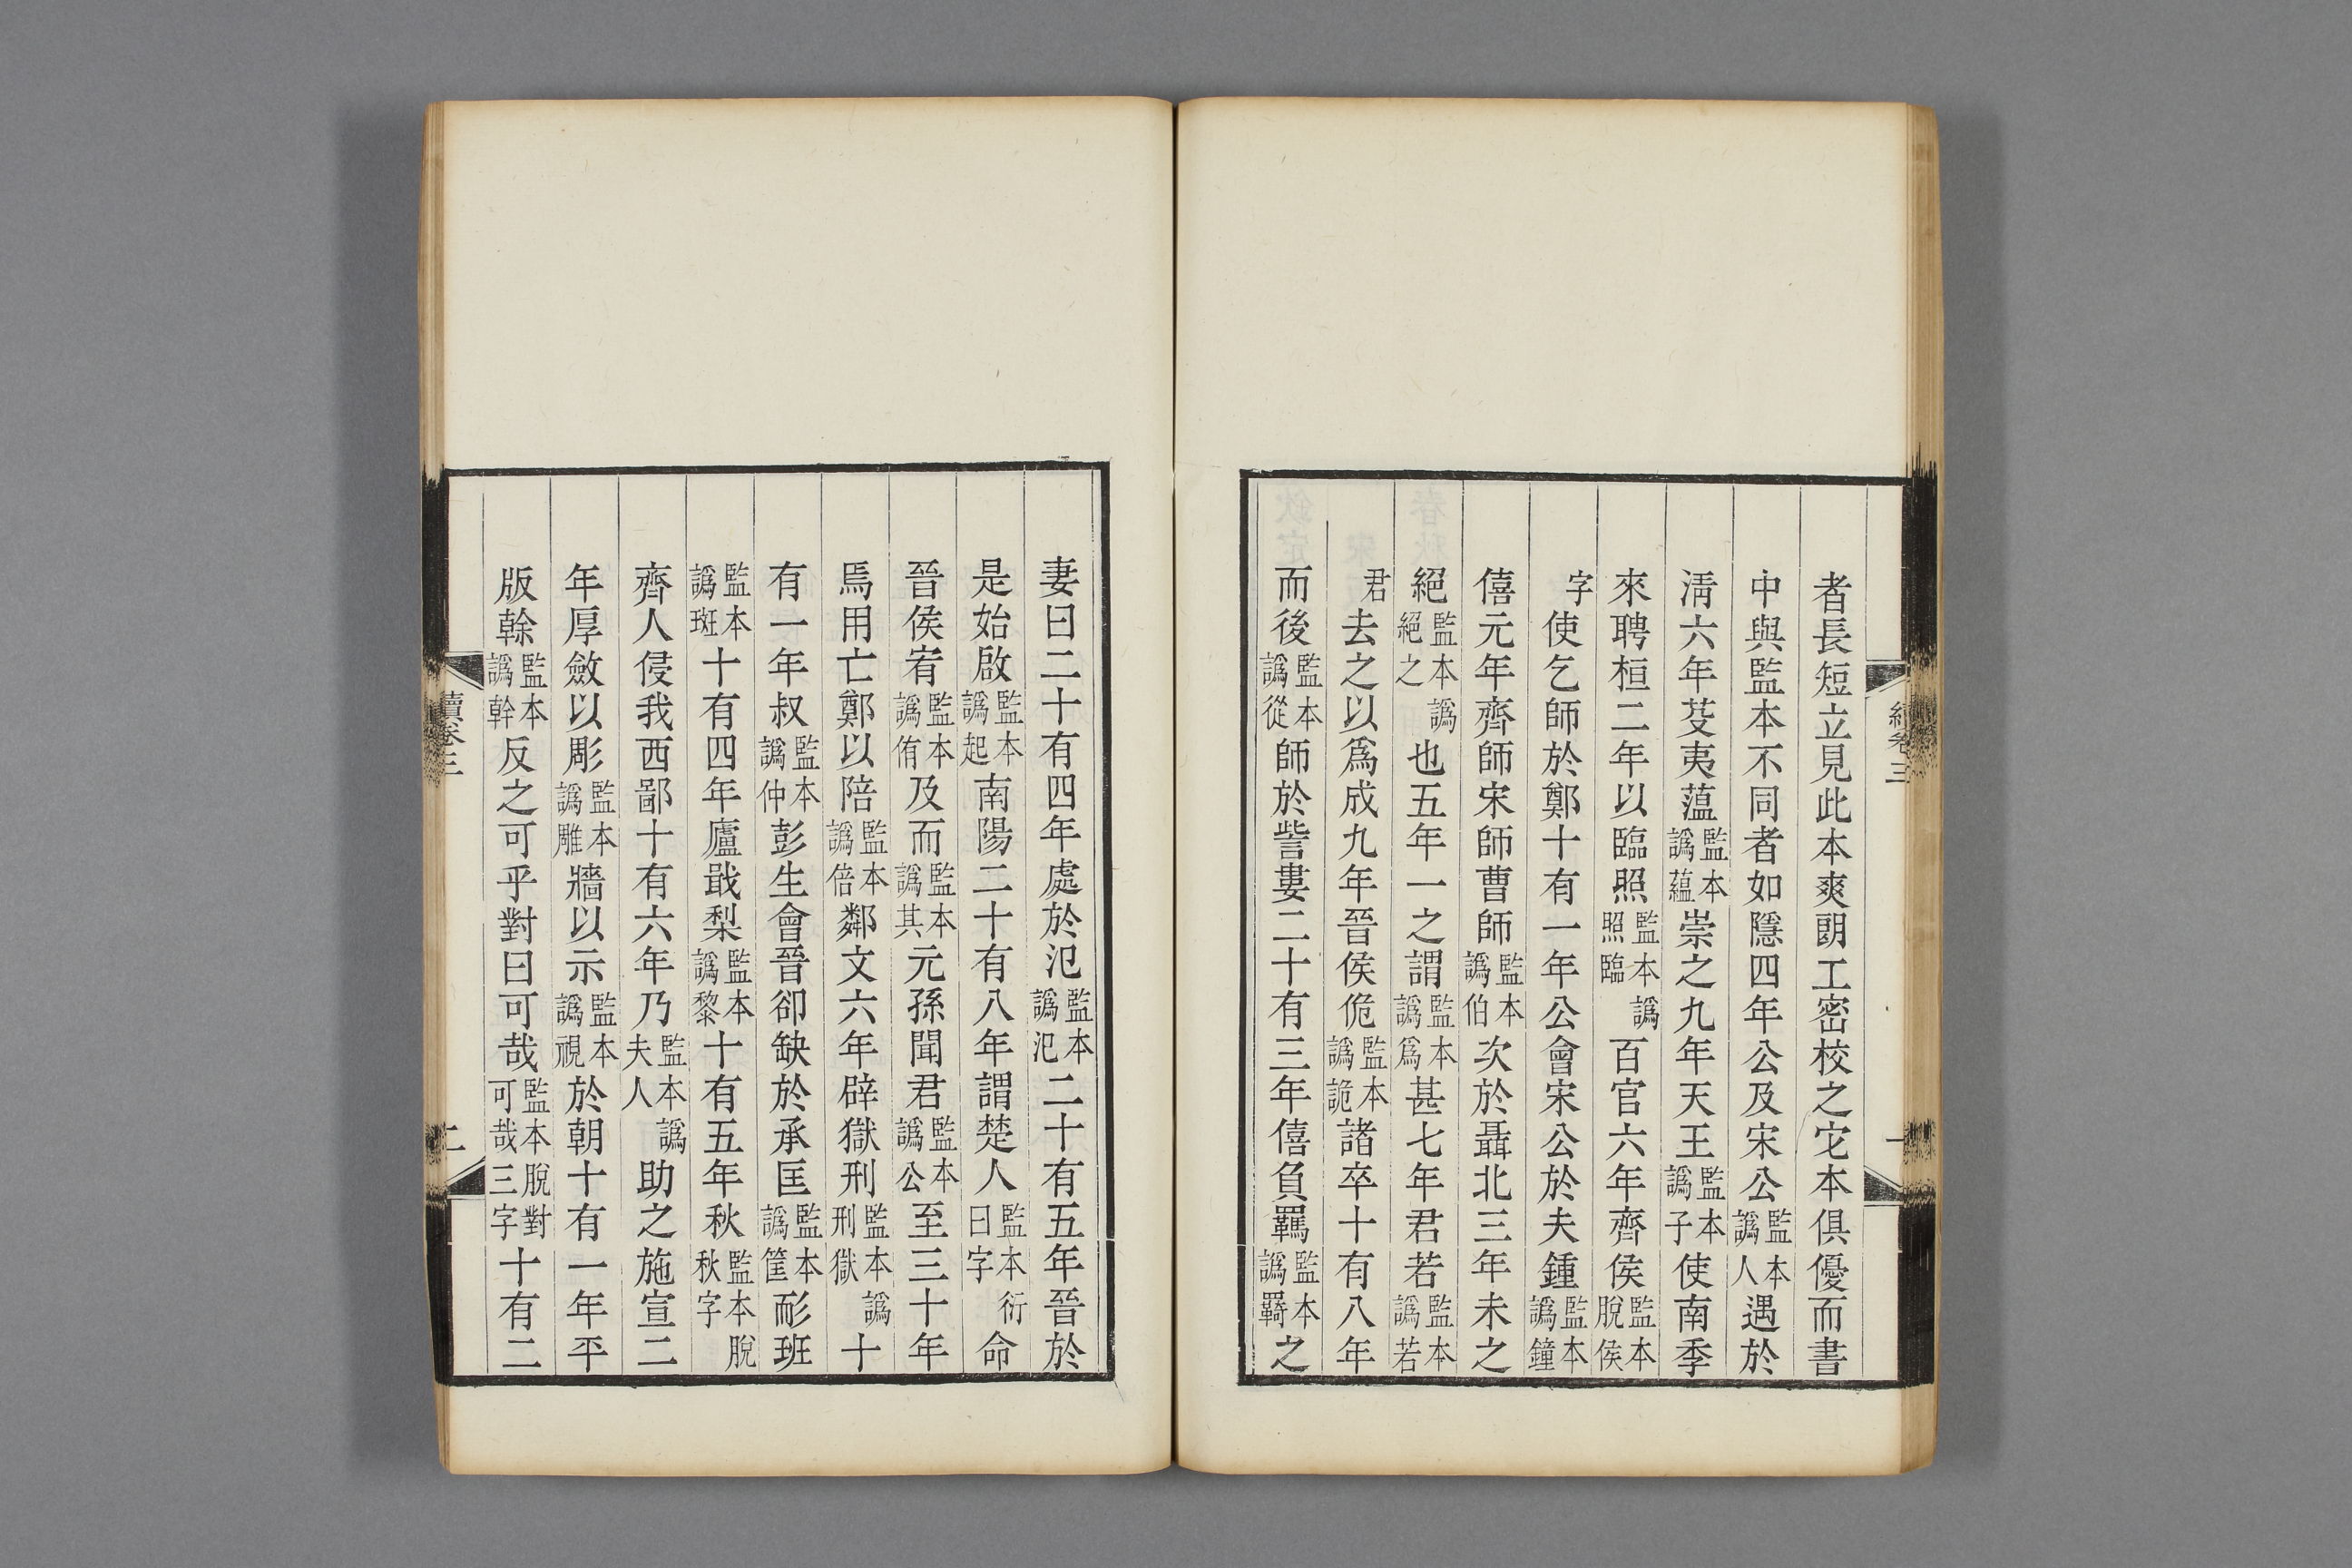 者長短立見此本爽朗工密校之它本俱優而書
中與監本不同者如隱四年公及宋公監本譌人遇於
淸六年芟夷薀監本譌蘊崇之九年天王監本譌子使南季
來聘桓二年以臨照監本譌照臨百官六年齊侯監本脫侯
字使乞師於鄭十有一年公會宋公於夫鍾監本譌鐘
僖元年齊師宋師曹師監本譌伯次於聶北三年未之
絕監本譌絕之也五年一之謂監本譌爲甚七年君若監本譌若
君去之以爲成九年晉侯佹監本譌詭諸卒十有八年
而後監本譌從師於訾婁二十有三年僖負羈監本譌羇之
妻曰二十有四年處於氾監本譌汜二十有五年晉於
是始啟監本譌起南陽二十有八年謂楚人監本衍曰字命
晉侯宥監本譌侑及而監本譌其元孫聞君監本譌公至三十年
焉用亡鄭以陪監本譌倍鄰文六年辟獄刑監本譌刑獄十
有一年叔監本譌仲彭生會晉卻缺於承匡監本譌筐耏班
監本譌斑十有四年廬戢梨監本譌黎十有五年秋監本脫秋字
齊人侵我西鄙十有六年乃監本譌夫人助之施宣二
年厚斂以彫監本譌雕牆以示監本譌視於朝十有一年平
版榦監本譌幹反之可乎對曰可哉監本脫對可哉三字十有二
續卷三
二